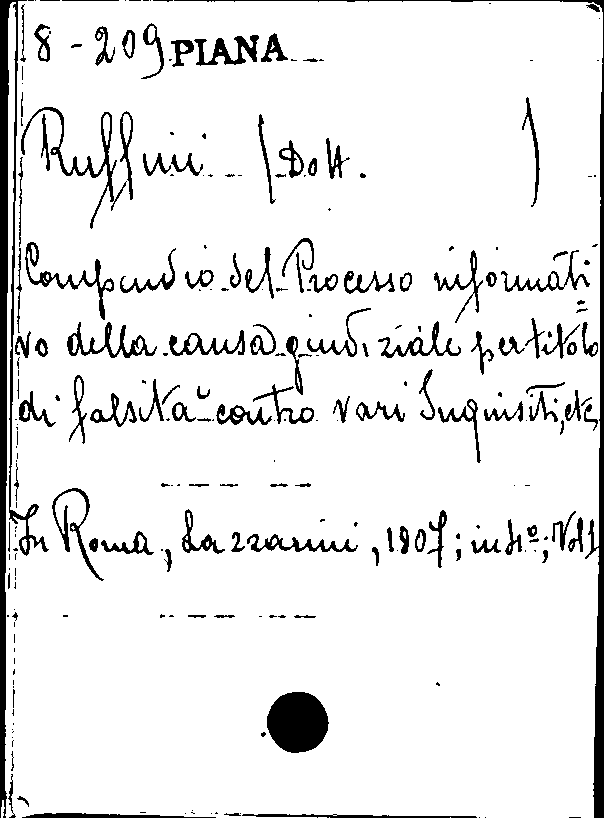 8-209 PIANA
Ruffini (Dott. )
Compendio del Processo informati=
vo della causa giudiziale per titolo
di falsità contro vari Inquisiti, etc,
In Roma, Lazzarini, 1807; in 4º; Vol 1